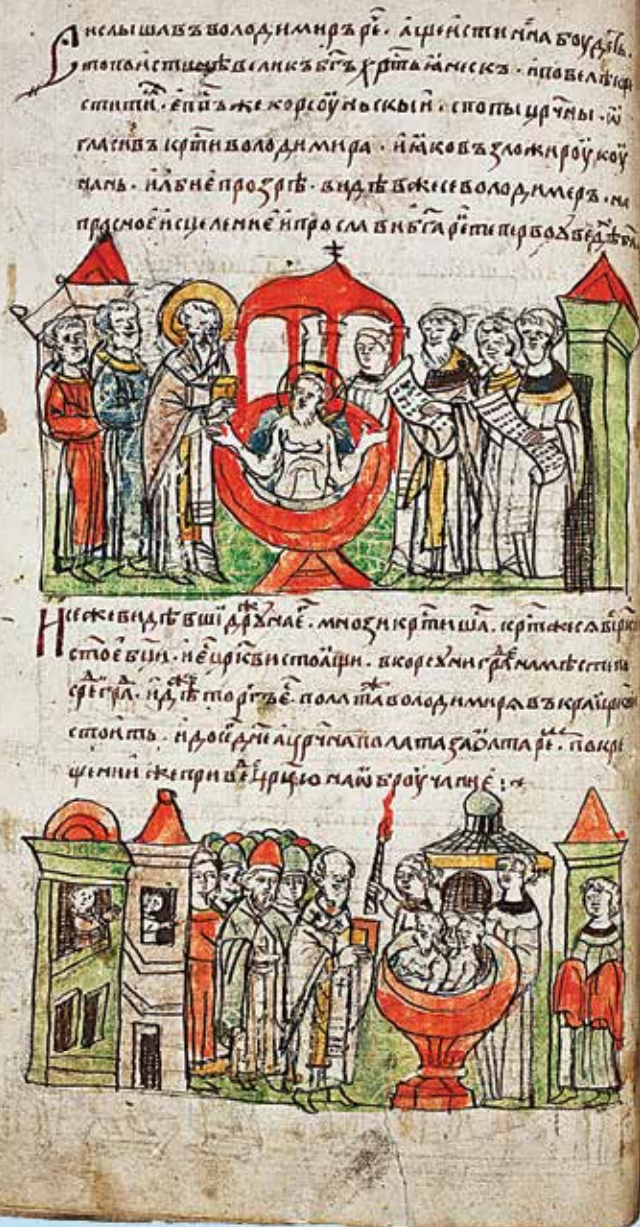 И слышавъ володимиръ рече. аще истинна боудеть.
то поистинѣ великъ бг҃ъ хр҃тьꙗнескъ. и повелѣ кр
стити. еп҃пъ же корсоуньскыи. с попы цр҃чны. ѡ
гласивъ кр҃ти володимира. и ꙗко възложи роукоу
нань. и абие прозрѣ. видѣв же се володимеръ. на
прасное исцеление и прослави бг҃а рек̑ теперво оуведѣ бг҃а
Се же видѣвши дружина е̑. мнози кр҃тишаⷭ. кр҃т же сѧ въ црк
стое бц҃и. и е̑ црк҃ви стоꙗщи. в корсуни градѣ на мѣсте по
средѣ града. идѣже торгъ дѣе̑. полата володимирѧ въ краи црк
стоить. и до сего дн҃е а цр҃чна полата за олтаре. по кре
щении же приведе цр҃цю на ѡброучание :